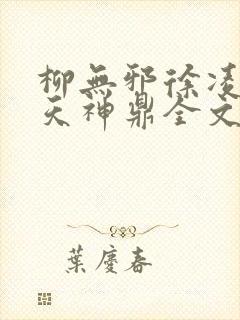 柳無邪徐凌
天神鼎全文
葉慶春